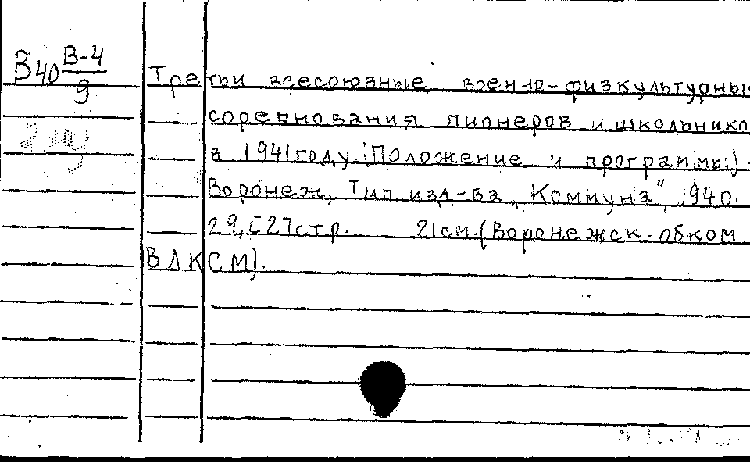 В40 В-4/9
Третьи всесоюзные военно-физкультурные
соревнования пионеров и школьнико
в 1941 году. (Положение и программы)
Воронеж, Тип изд-ва „Коммуна", 940.
29,[2]стр. 21см. (Воронежск. обком
ВЛКСМ).